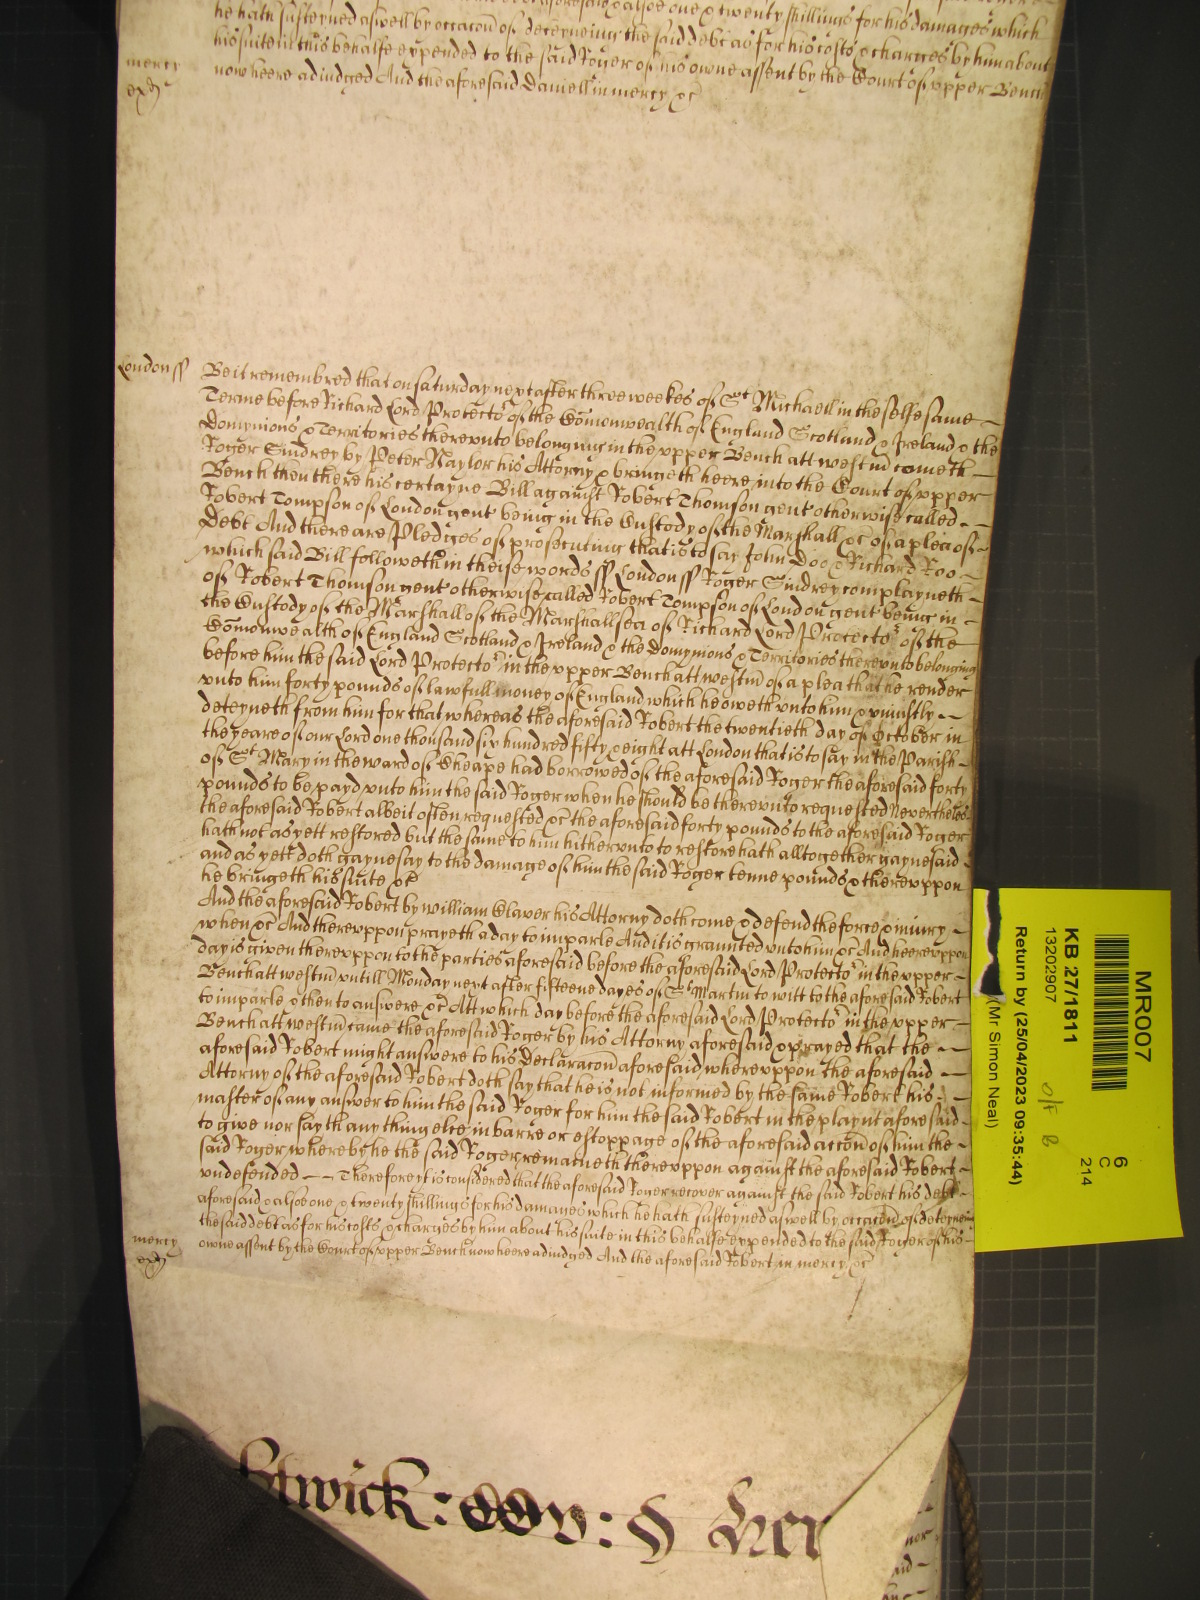 he hath susteyned aswell by occacōn of deteyneing the said debt as for his costs & charges by him about
his suite in this behalfe expended to the said Roger of his owne assent by the Court of upper Bench
now heere adiudged And the aforesaid Daniell in mercy &c
mercy
London ss Be it remembred that on saturday next after three weekes of St Michaell in the selfe same
Terme before Richard Lord Protector of the Com̄onwealth of England Scotland & Ireland & the
Dominions & Territories therevnto belonging in the vpper Bench att westm̄ cometh
Roger Sindrey by Peter Naylor his Attorny & bringeth heere into the Court of vpper
Bench then there his certayne Bill against Robert Thomson gent otherwise called
Robert Tompson of London gent being in the Custody of the Marshall &c of a plea of
Debt And there are Pledges of prosecuting that is to say John Doo & Richard Roo
which said Bill followeth in theise words ss London ss Roger Sindrey complayneth
of Robert Thomson gent otherwise called Robert Tompson of London gent being in
the Custody of the Marshall of the Marshallsea of Richard Lord Protector of the
Com̄onwealth of England Scotland & Ireland & the Dominyons & Territories therevnto belonging
before him the said Lord Protector in the vpper Bench att westm̄ of a plea that he render
vnto him forty pounds of lawfull money of England which he oweth vnto him & vniustly
deteyneth from him for that whereas the aforesaid Robert the twentieth day of October in
the yeare of our Lord one thousand six hundred fifty & eight att London that is to say in the Parish
of St Mary in the ward of Cheape had borrowed of the aforesaid Roger the aforesaid forty
pounds to be payd vnto him the said Roger when he should be therevnto requested Neverthelesse
the aforesaid Robert albeit often requested &c the aforesaid forty pounds to the aforesaid Roger
hath not as yett restored but the same to him hithervnto to restore hath alltogether gaynesaid
and as yett doth gaynesay to the damage of him the said Roger tenne pounds & therevppon
he bringeth his suite &c
And the aforesaid Robert by William Claver his Attorny doth come & defend the force & iniury
when &c And therevppon prayeth a day to imparle And it is graunted vnto him &c And heerevppon
day is given therevppon to the parties aforesaid before the aforesaid Lord Protector in the vpper
Bench att westm̄ vntill Monday next after fifteene dayes of St Martin to witt to the aforesaid Robert
to imparle & then to answere &c Att which day before the aforesaid Lord Protector in the vpper
Bench att westm̄ came the aforesaid Roger by his Attorny aforesaid & prayed that the
aforesaid Robert might answere to his Declaracōn aforesaid wherevppon the aforesaid
Attorny of the aforesaid Robert doth say that he is not informed by the same Robert his
master of any answer to him the said Roger for him the said Robert in the playnt aforesaid
to give nor sayth any thing else in barre or estoppage of the aforesaid accōn of him the
said Roger whereby he the said Roger remaineth therevppon against the aforesaid Robert
vndefended Therefore yt is considered that the aforesaid Roger recover against the said Robert his debt
aforesaid & alsoe one & twenty shillings for his damages which he hath susteyned aswell by occacōn of deteyneing
the said debt as for his costs & charges by him about his suite in this behalfe expended to the said Roger of his
owne assent by the Court of vpper Bench now heere adiudged And the aforesaid Robert in mercy &c
mercy
MR007
KB 27/1811
13202907
Return by (25/04/2023 09:35:44)
(Mr Simon Neal)
6
C
214